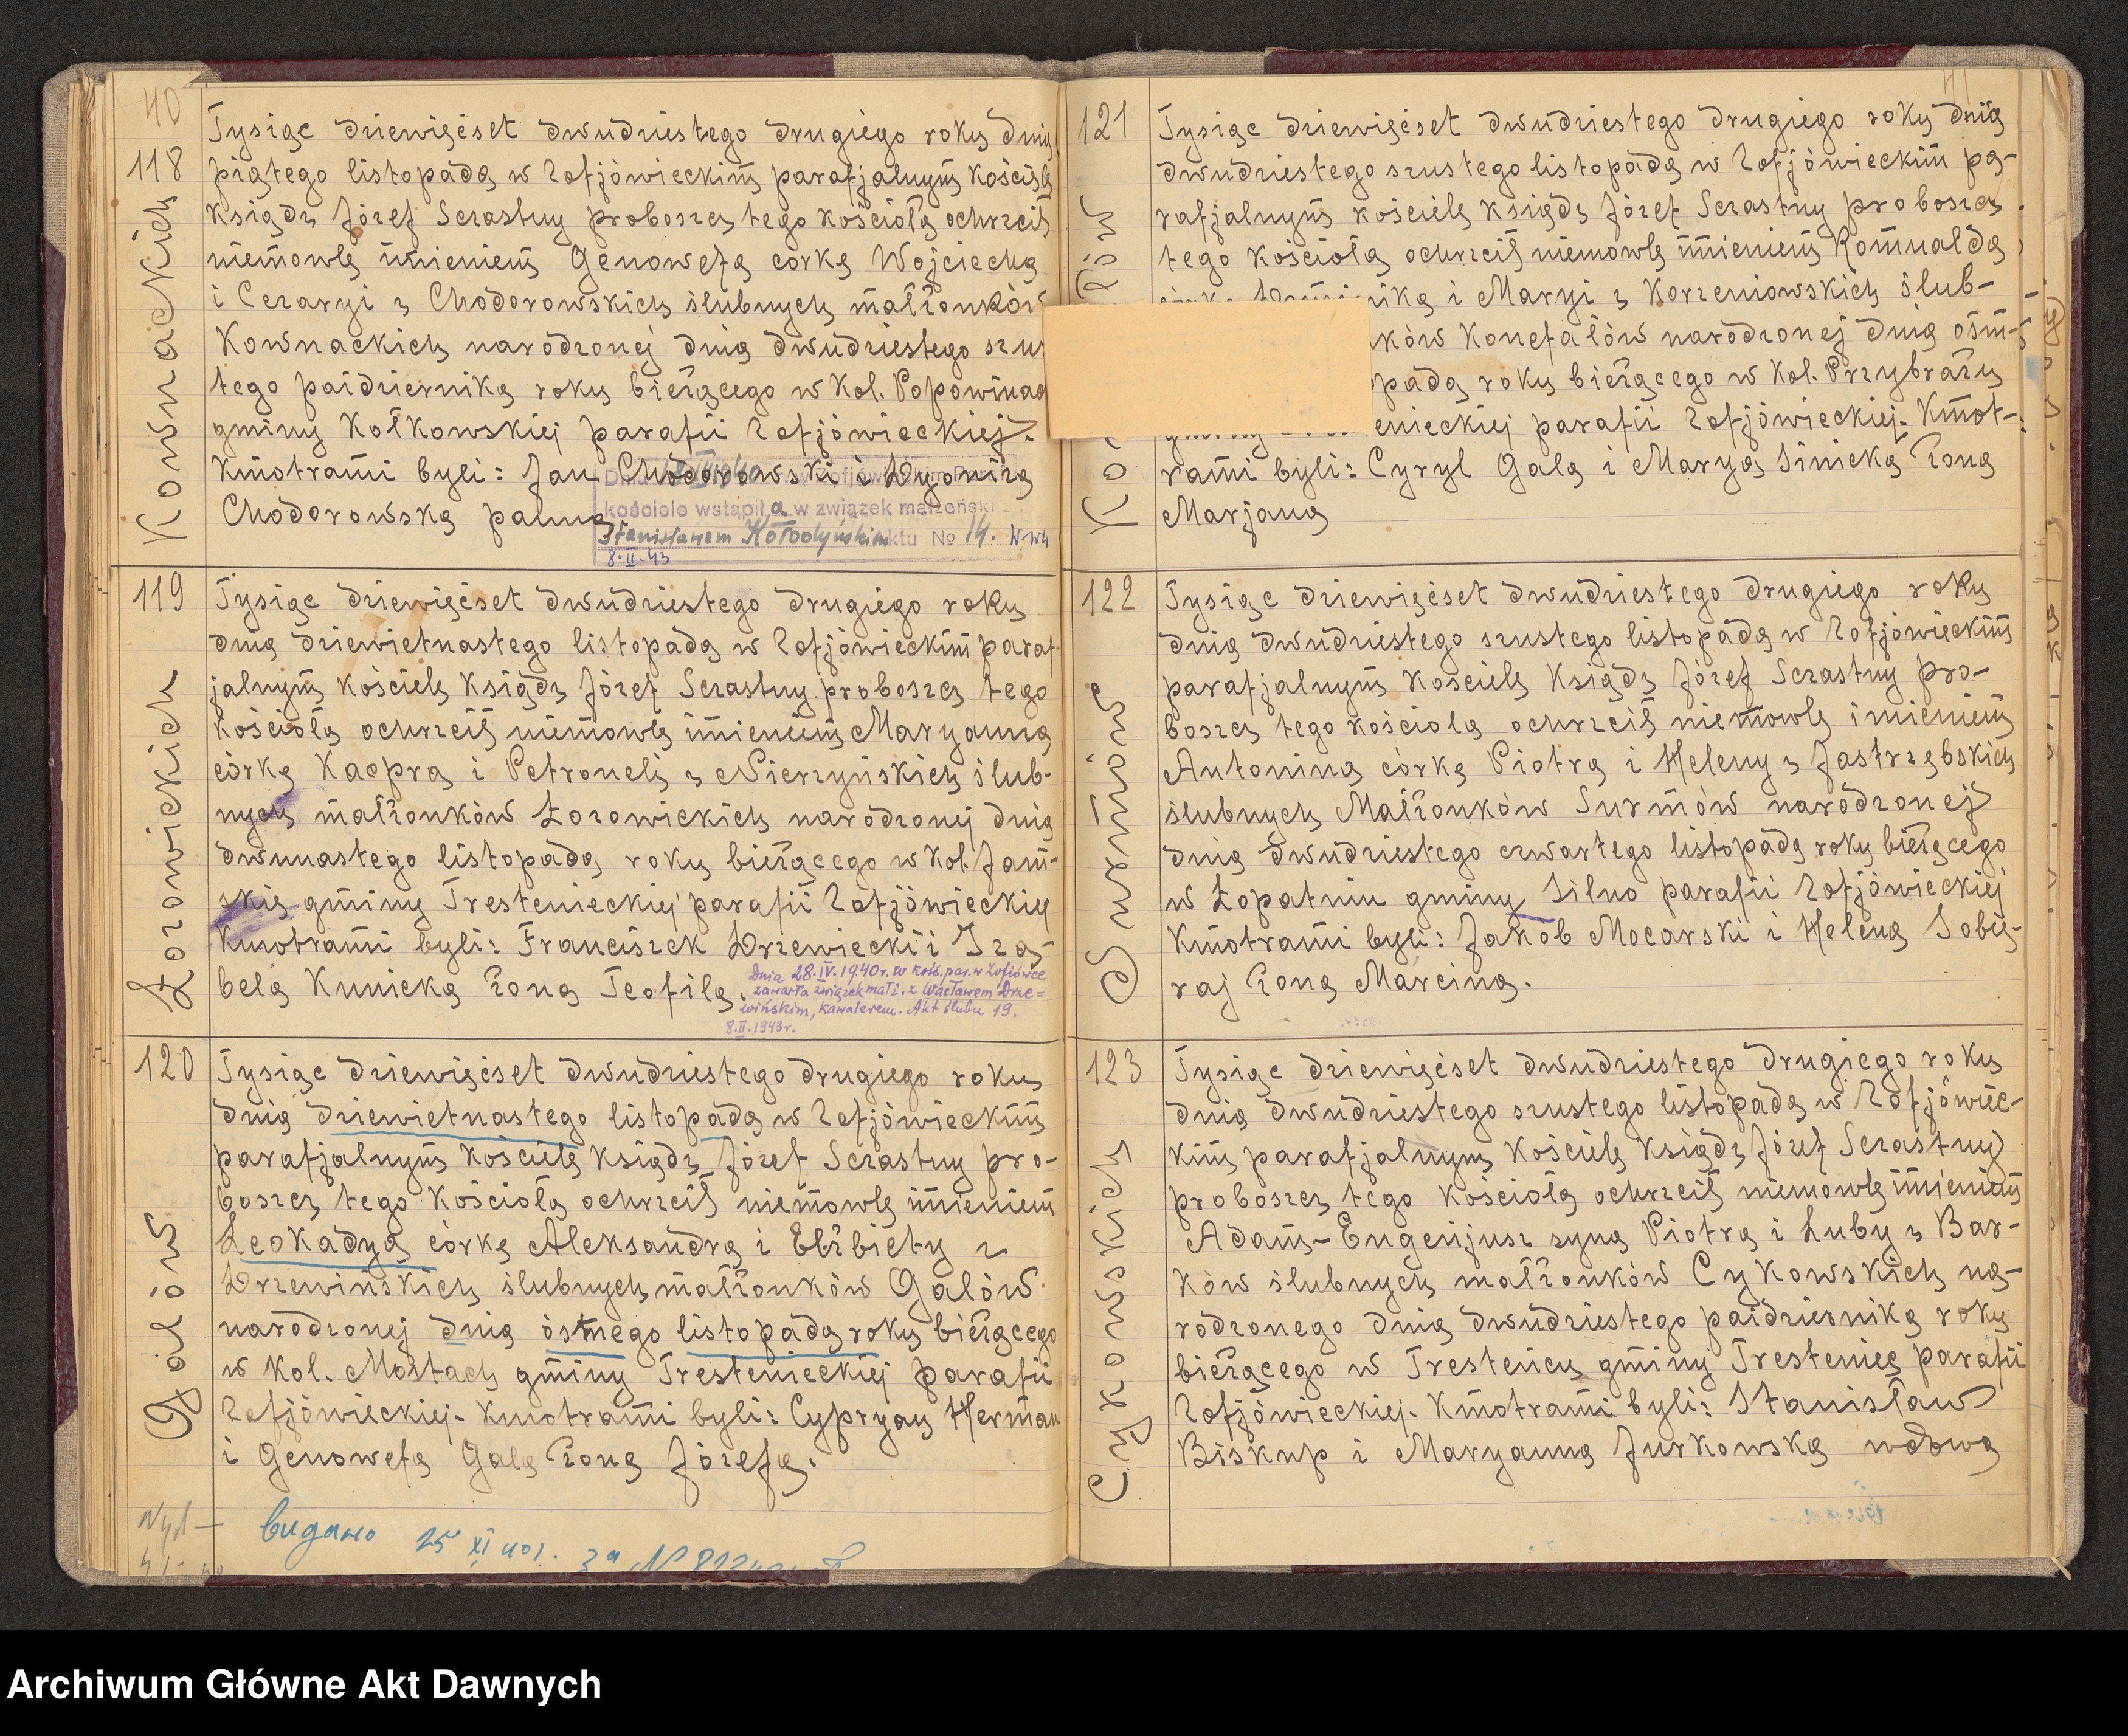 40
118
Kownackich
Tysiąc dziewięćset dwudziestego drugiego roku dnia
piątego listopada w Zofjówieckim parafjalnym kościele
ksiądz Józef Szczastny proboszcz tego kościoła ochrzcił
niemowlę imieniem Genowefa córkę Wojciecha
i Cezaryi z Chodorowskich ślubnych małżonków
Kownackich narodzonej dnia dwudziestego szus
tego paidziernika roku bieżącego w Kol. Popowinach
gminy Kołkowskiej parafii Zofjówieckiej.
Kmotrami byli: Jan Chodorowski i Dyoniza
Chodorowska panna
kościele wstąpiła w związek małżeński
Stanisławem Kołodyńskim aktu No 14.
8.II.43
119
Łozowickich
Tysiąc dziewięćset dwudziestego drugiego roku
dnia dziewietnastego listopada w Zofjówieckim paraf-
jalnym kościele ksiądz Józef Szczastny proboszcz tego
kościoła ochrzcił niemowlę imieniem Maryanna
córkę Kacpra i Petroneli z Nierzyńskich ślub-
nych małżonków Łozowickich narodzonej dnia
dwunastego listopada roku bieżącego w Kol Jam-
skie gminy Trestenieckiej parafii Zofjówieckiej
Kmotrami byli: Franciszek Drzewiecki i Iza-
bela Kunicka żona Teofila.
Dnia 28.IV.1940 r. w kość. par. w Zofiówce
zawarła związek małż. z Wacławem Drze=
wińskim, kawalerem. Akt ślubu 19.
8.II.1943r.
120
Galów
Tysiąc dziewięćset dwudziestego drugiego roku
dnia dziewietnastego listopada w Zofjówieckim
parafjalnym kościele ksiądz Józef Szczastny pro-
boszcz tego kościoła ochrzcił niemowlę imieniem
Leokadya córkę Aleksandra i Elżbiety z
Drzewińskich ślubnych małżonków Galów
narodzonej dnia ósmego listopada roku bieżącego
w Kol. Mostach gminy Trestenieckiej parafii
Zofjówieckiej. Kmotrami byli: Cypryan Herman
i Genowefa Gala żona Józefa.
25 XI
121
Tysiąc dziewięćset dwudziestego drugiego roku dnia
dwudziestego szustego listopada w Zofjówieckim pa-
rafjalnym kościele ksiądz Józef Szczastny proboszcz
tego kościoła ochrzcił niemowlę imieniem Romualda
i Maryi z Korzeniowskich ślub-
Konefałów narodzonej dnia ósm-
roku bieżącego w Kol. Przybrażu
parafii Zofjówieckiej. Kmot-
rami byli: Cyryl Gala i Marya Sinicka żona
Marjana
122
Surmów
Tysiąc dziewięćset dwudziestego drugiego roku
dnia dwudziestego szustego listopada w Zofjówieckim
parafjalnym kościele ksiądz Józef Szczastny pro-
boszcz tego kościoła ochrzcił niemowlę imieniem
Antonina córkę Piotra i Heleny z Jastrzębskich
ślubnych Małżonków Surmów narodzonej
dnia dwudziestego czwartego listopada roku bieżącego
w Łopatniu gminy Silno parafii Zofjówieckiej
Kmotrami byli: Jakób Mocarski i Helena Sobie-
raj żona Marcina.
123
Cykowskich
Tysiąc dziewięćset dwudziestego drugiego roku
dnia dwudziestego szustego listopada w Zofjówiec-
kim parafjalnym kościele ksiądz Józef Szczastny
proboszcz tego kościoła ochrzcił niemowlę imieniem
Adam-Eugenjusz syna Piotra i Luby z Bar-
ków ślubnych małżonków Cykowskich na-
rodzonego dnia dwudziestego paidziernika roku
bieżącego w Tresteńcu gminy Trestenieć parafii
Zofjówieckiej. Kmotrami byli: Stanisław
Biskup i Maryanna Jurkowska wdowa
Archiwum Główne Akt Dawnych